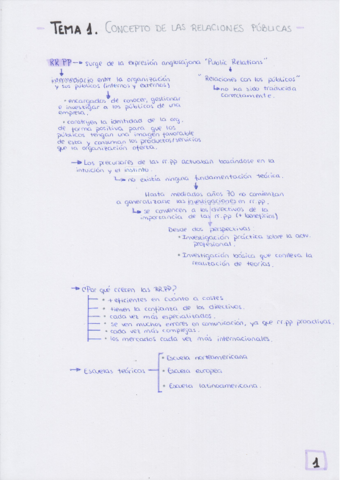 - TEMA 1. CONCEPTO DE LAS RELACIONES PÚBLICAS -
RR.PP → surge de la expresión anglosajona "Public Relations"
intermediario entre la organización
y sus públicos (internos y externos)
"Relaciones con los públicos"
no ha sido traducida
correctamente.
• encargados de conocer, gestionar
e investigar a los públicos de una
empresa.
• construyen la identidad de la org.
de forma positiva para que los
públicos tengan una imagen favorable
de esta y consuman los productos/servicios
que la organización oferta.
→ Los precursores de las rr.pp actuaban basándose en la
intuición y el instinto.
no existía ninguna fundamentación teórica.
Hasta mediados años 70 no comienzan
a generalizarse las investigaciones en rr.pp.
se convencen a los directivos de la
importancia de las rr.pp (+ beneficios)
Desde dos perspectivas
• Investigación práctica sobre la
profesional.
• Investigación teórica que conlleva la
realización de teorías.
→ ¿Por qué crecen las RR.PP?
• + eficientes en cuanto a costes.
• tienen la confianza de los directivos.
• cada vez más especialidades.
• Se ven muchos errores en comunicación, ya que rr.pp proactivas.
• cada vez más complejas.
• los mercados cada vez más internacionales.
→ Escuelas teóricas
• Escuela norteamericana
• Escuela europea
• Escuela latinoamericana.
1